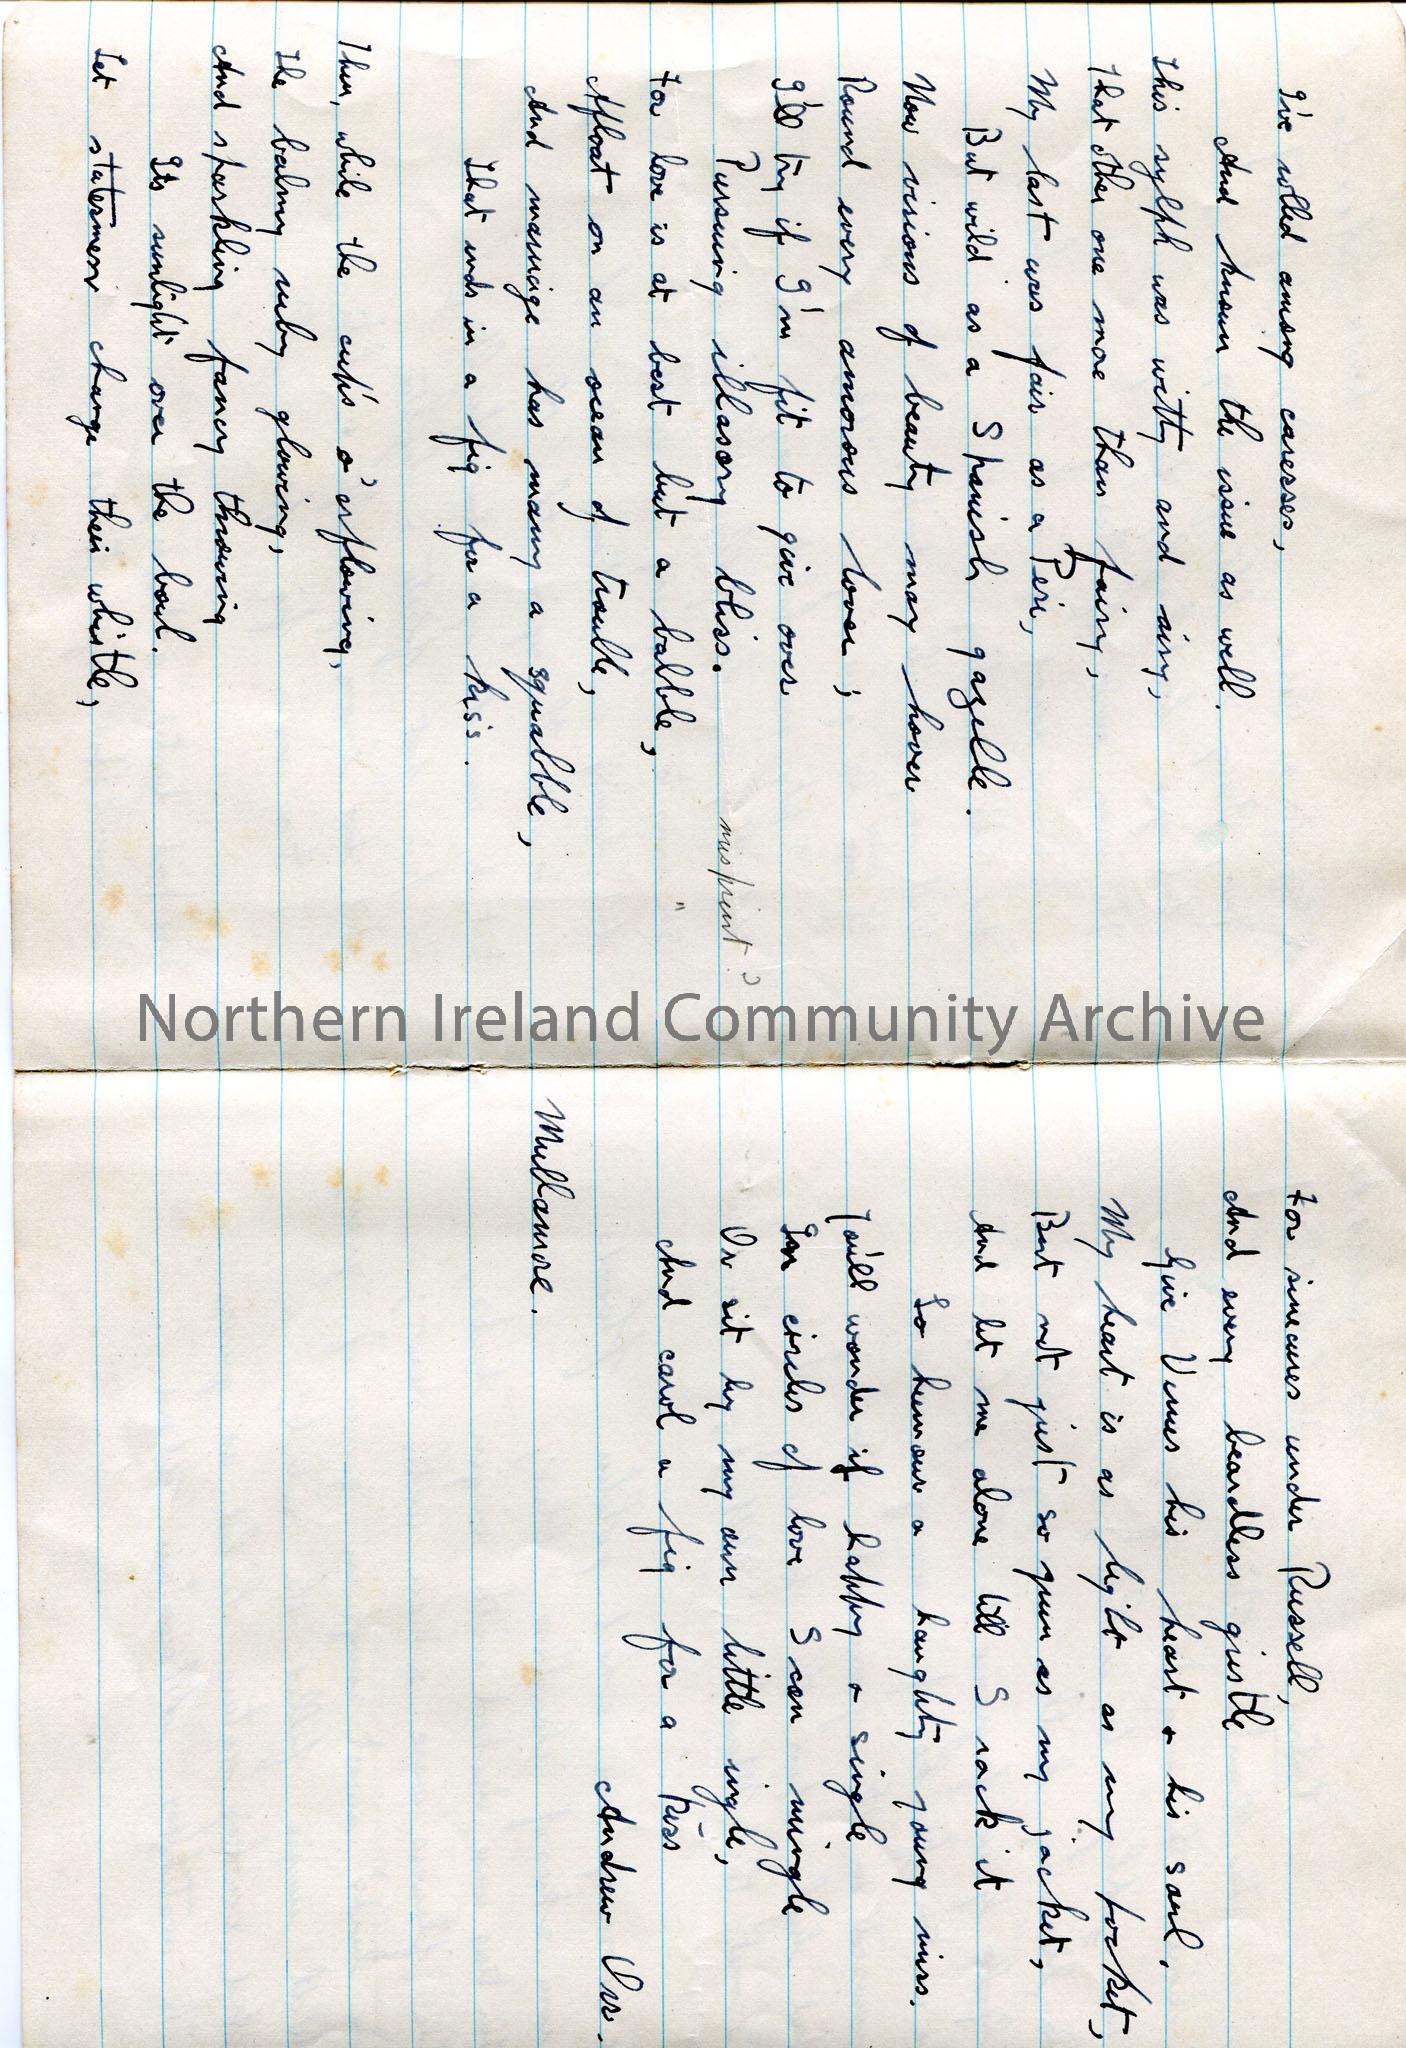 I've rolled among caresses,
And known the issue as well.
This sylph was witty and airy,
That other one more than fairy,
My last was fair as a Peri,
But wild as a Spanish gazelle.
Now visions of beauty may hover
Round every amorous lover;
I'll try if I'm fit to give over
Pursuing illusory bliss. misprint?
For love is at best but a babble, "
Afloat on an ocean of trouble,
And marriage has many a squabble,
That ends in a fig for a kiss.
Then, while the cup's o'erflowing,
The balmy ruby glowing,
And sparkling fancy throwing
Its sunlight over the bowl.
Let statesmen change their whistle,
For sinecures under Russell,
And every beardless gristle
Give Venus his heart & his soul,
My heart is as light as my pocket,
But not just so green as my jacket,
And let me alone till I rack it
To humour a haughty young miss.
You'll wonder if happy & single
In circles of love I can mingle
Or sit by my own little ingle,
And carol a fig for a kiss
Andrew Orr.
Mullamore.
Northern Ireland Community Archive